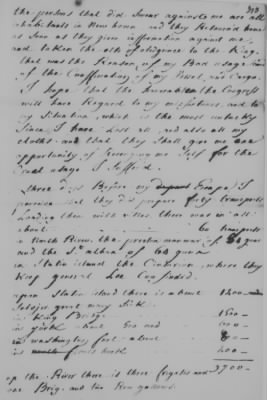 the persons that did Swear against me are all
inhabitants in New town and they Returned home
as Soon as they given information against me,
and taken the oth of aledgience to the King.
that was the Reason, of my Bad usage and
of the Confiscating of my Vessel, and Cargo.
I hope that the Honorable the Congress
will have Regard to my misfortunes, and to
my Situation, which is the most unlucky
Since I have Lost all, and also all my
cloths and that they Shall give me an
opportunity of Revenging my Self for the
Cruel usage I Suffer'd.
three days Before my Escape I
perceived that they did prepare forty transports
Loading them with there was in all
about 60 transports
in North River, the
and the St. albans of 64 guns
in Staten island the Centurion, where they
keep general Lee Confined.
upon Staten island there is about 1200
Soldiers great many Sick.
in King Bridge 1500
in york about
in washington fort about
400
3700
up the River there is three frigates and
one Brig. and two Row galleys.